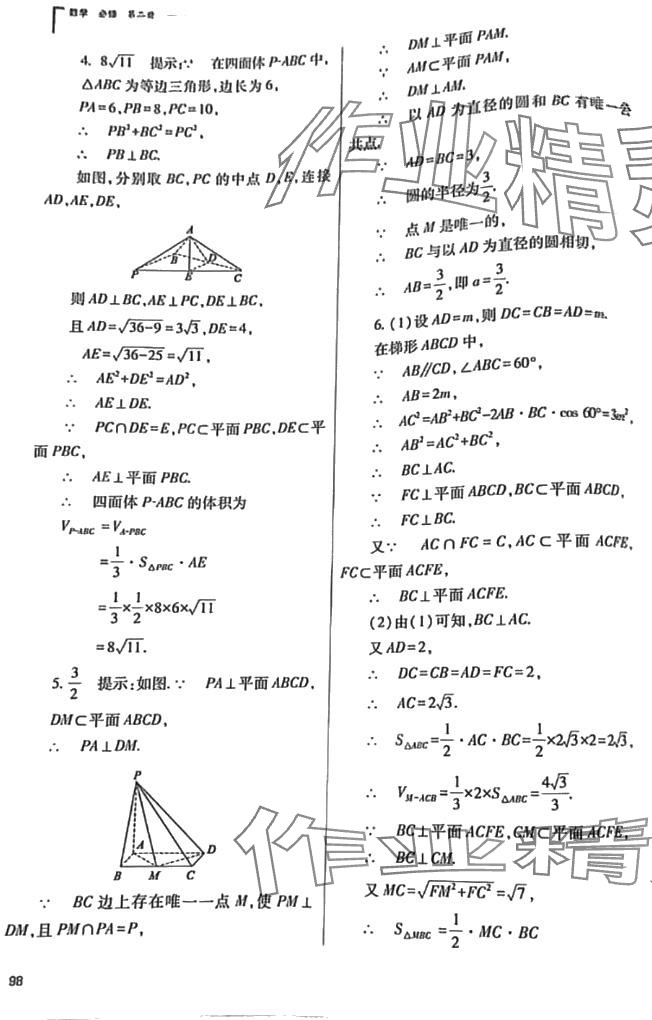 数学 必修 第二册
4. 8√11 提示:∵ 在四面体 P-ABC 中,
△ABC 为等边三角形,边长为 6,
PA=6,PB=8,PC=10,
∴ PB²+BC²=PC²,
∴ PB⊥BC.
如图,分别取 BC,PC 的中点 D,E,连接
AD,AE,DE,
A
B D
P E C
则 AD⊥BC,AE⊥PC,DE⊥BC,
且 AD=√(36-9)=3√3,DE=4,
AE=√(36-25)=√11,
∴ AE²+DE²=AD²,
∴ AE⊥DE.
∵ PC∩DE=E,PC⊂平面 PBC,DE⊂平
面 PBC,
∴ AE⊥平面 PBC.
∴ 四面体 P-ABC 的体积为
V_{P-ABC}=V_{A-PBC}
=1/3·S_{△PBC}·AE
=1/3×1/2×8×6×√11
=8√11.
5. 3/2 提示:如图.∵ PA⊥平面 ABCD,
DM⊂平面 ABCD,
∴ PA⊥DM.
P
A D
B M C
∵ BC 边上存在唯一一点 M,使 PM⊥
DM,且 PM∩PA=P,
∴ DM⊥平面 PAM.
∵ AM⊂平面 PAM,
∴ DM⊥AM.
∴ 以 AD 为直径的圆和 BC 有唯一公
共点.
∵ AD=BC=3,
∴ 圆的半径为3/2.
∵ 点 M 是唯一的,
∴ BC 与以 AD 为直径的圆相切,
∴ AB=3/2,即 a=3/2.
6. (1)设 AD=m,则 DC=CB=AD=m.
在梯形 ABCD 中,
∵ AB//CD,∠ABC=60°,
∴ AB=2m,
∴ AC²=AB²+BC²-2AB·BC·cos 60°=3m²,
∴ AB²=AC²+BC²,
∴ BC⊥AC.
∵ FC⊥平面 ABCD,BC⊂平面 ABCD,
∴ FC⊥BC.
又∵ AC∩FC=C,AC⊂平面 ACFE,
FC⊂平面 ACFE,
∴ BC⊥平面 ACFE.
(2)由(1)可知,BC⊥AC.
又 AD=2,
∴ DC=CB=AD=FC=2,
∴ AC=2√3.
∴ S_{△ABC}=1/2·AC·BC=1/2×2√3×2=2√3,
∴ V_{M-ACB}=1/3×2×S_{△ABC}=4√3/3.
∵ BC⊥平面 ACFE,CM⊂平面 ACFE,
∴ BC⊥CM.
又 MC=√(FM²+FC²)=√7,
∴ S_{△MBC}=1/2·MC·BC
98
作业精灵
作业精